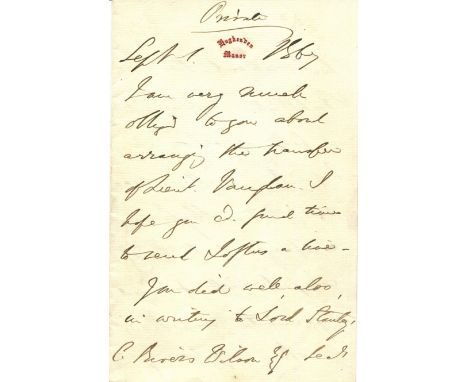 Private
Hughenden
Manor
Sept 1. 1867
I am very much
obliged to you about
arranging the transfer
of Lieut. Vaughan. I
hope you d. find time
to send Loftus a line -
You did well, also,
in writing to Lord Stanley.
C. Rivers Wilson Esq